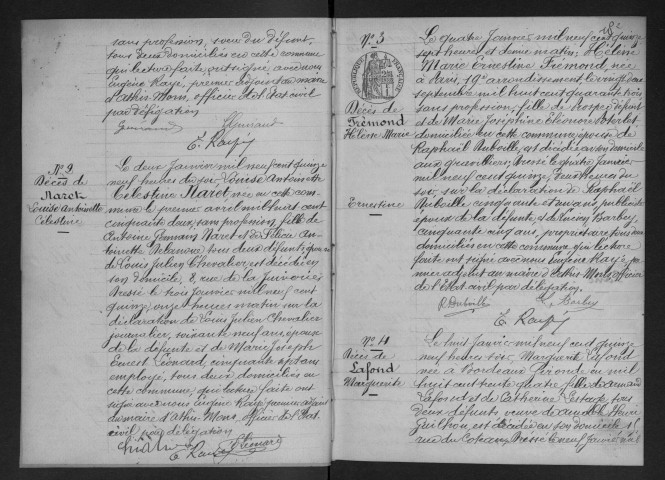 sans profession, sœur du défunt,
tous deux domiciliés en cette commune
qui lecture faite, ont signé, avec nous
Eugène Rayé, premier adjoint au maire
d'Athis-Mons, officier d'Etat civil
par délégation
E. Rayé
N° 2
Décès de
Naret
Louise Antoinette
Célestine
Le deux Janvier mil neuf cent quinze
neuf heures du soir, Louise Antoinette
Célestine Naret née en cette com-
mune le premier avril mil huit cent
cinquante deux, sans profession, fille de
Antoine Germain Naret et de Félicie An-
toinette Delanoue tous deux défunts, épouse
de Louis Julien Chevalier, est décédée en
son domicile, 8, rue de la
Dressé le trois Janvier mil neuf cent
quinze, onze heures matin sur la
déclaration de Louis Julien Chevalier
journalier, soixante neuf ans, époux
de la défunte et de Marie Joseph
Ernest Léonard, cinquante sept ans
employé, tous deux domiciliés en
cette commune, qui lecture faite ont
signé avec nous Eugène Rayé premier adjoint
du maire d'Athis-Mons, officier de l'Etat
civil par délégation
E. Rayé Léonard
N° 3
RÉPUBLIQUE FRANÇAISE
Décès de
Frémond
Hélène Marie
Ernestine
Le quatre Janvier mil neuf cent quinze
sept heures et demie matin, Hélène
Marie Ernestine Frémond, née
à Paris, 19e arrondissement, le vingt deux
septembre mil huit cent quarante trois
sans profession, fille de défunt
et de Marie Joséphine Eléonore
domiciliée en cette commune, épouse de
Raphaël est décédée en son domicile
Dressé le quatre Janvier
mil neuf cent quinze, heures du
soir, sur la déclaration de Raphaël
cinquante et un ans, publiciste
époux de la défunte, et de Barbey,
cinquante cinq ans, propriétaire, tous deux
domiciliés en cette commune qui lecture
faite, ont signé avec nous Eugène Rayé, pre-
mier adjoint au maire d'Athis-Mons, officier
de l'Etat civil par délégation.
Barbey
E. Rayé
N° 4
Décès de
Lafond
Marguerite
Le huit Janvier mil neuf cent quinze
neuf heures soir, Marguerite Lafond
née à Bordeaux Gironde en mil
huit cent trente quatre, fille de Arnaud
Lafond et de Catherine Lestage, tous
deux défunts veuve de André Henri
Guilhon, est décédée en son domicile, 15
rue du Coteau. Dressé le neuf Janvier mil